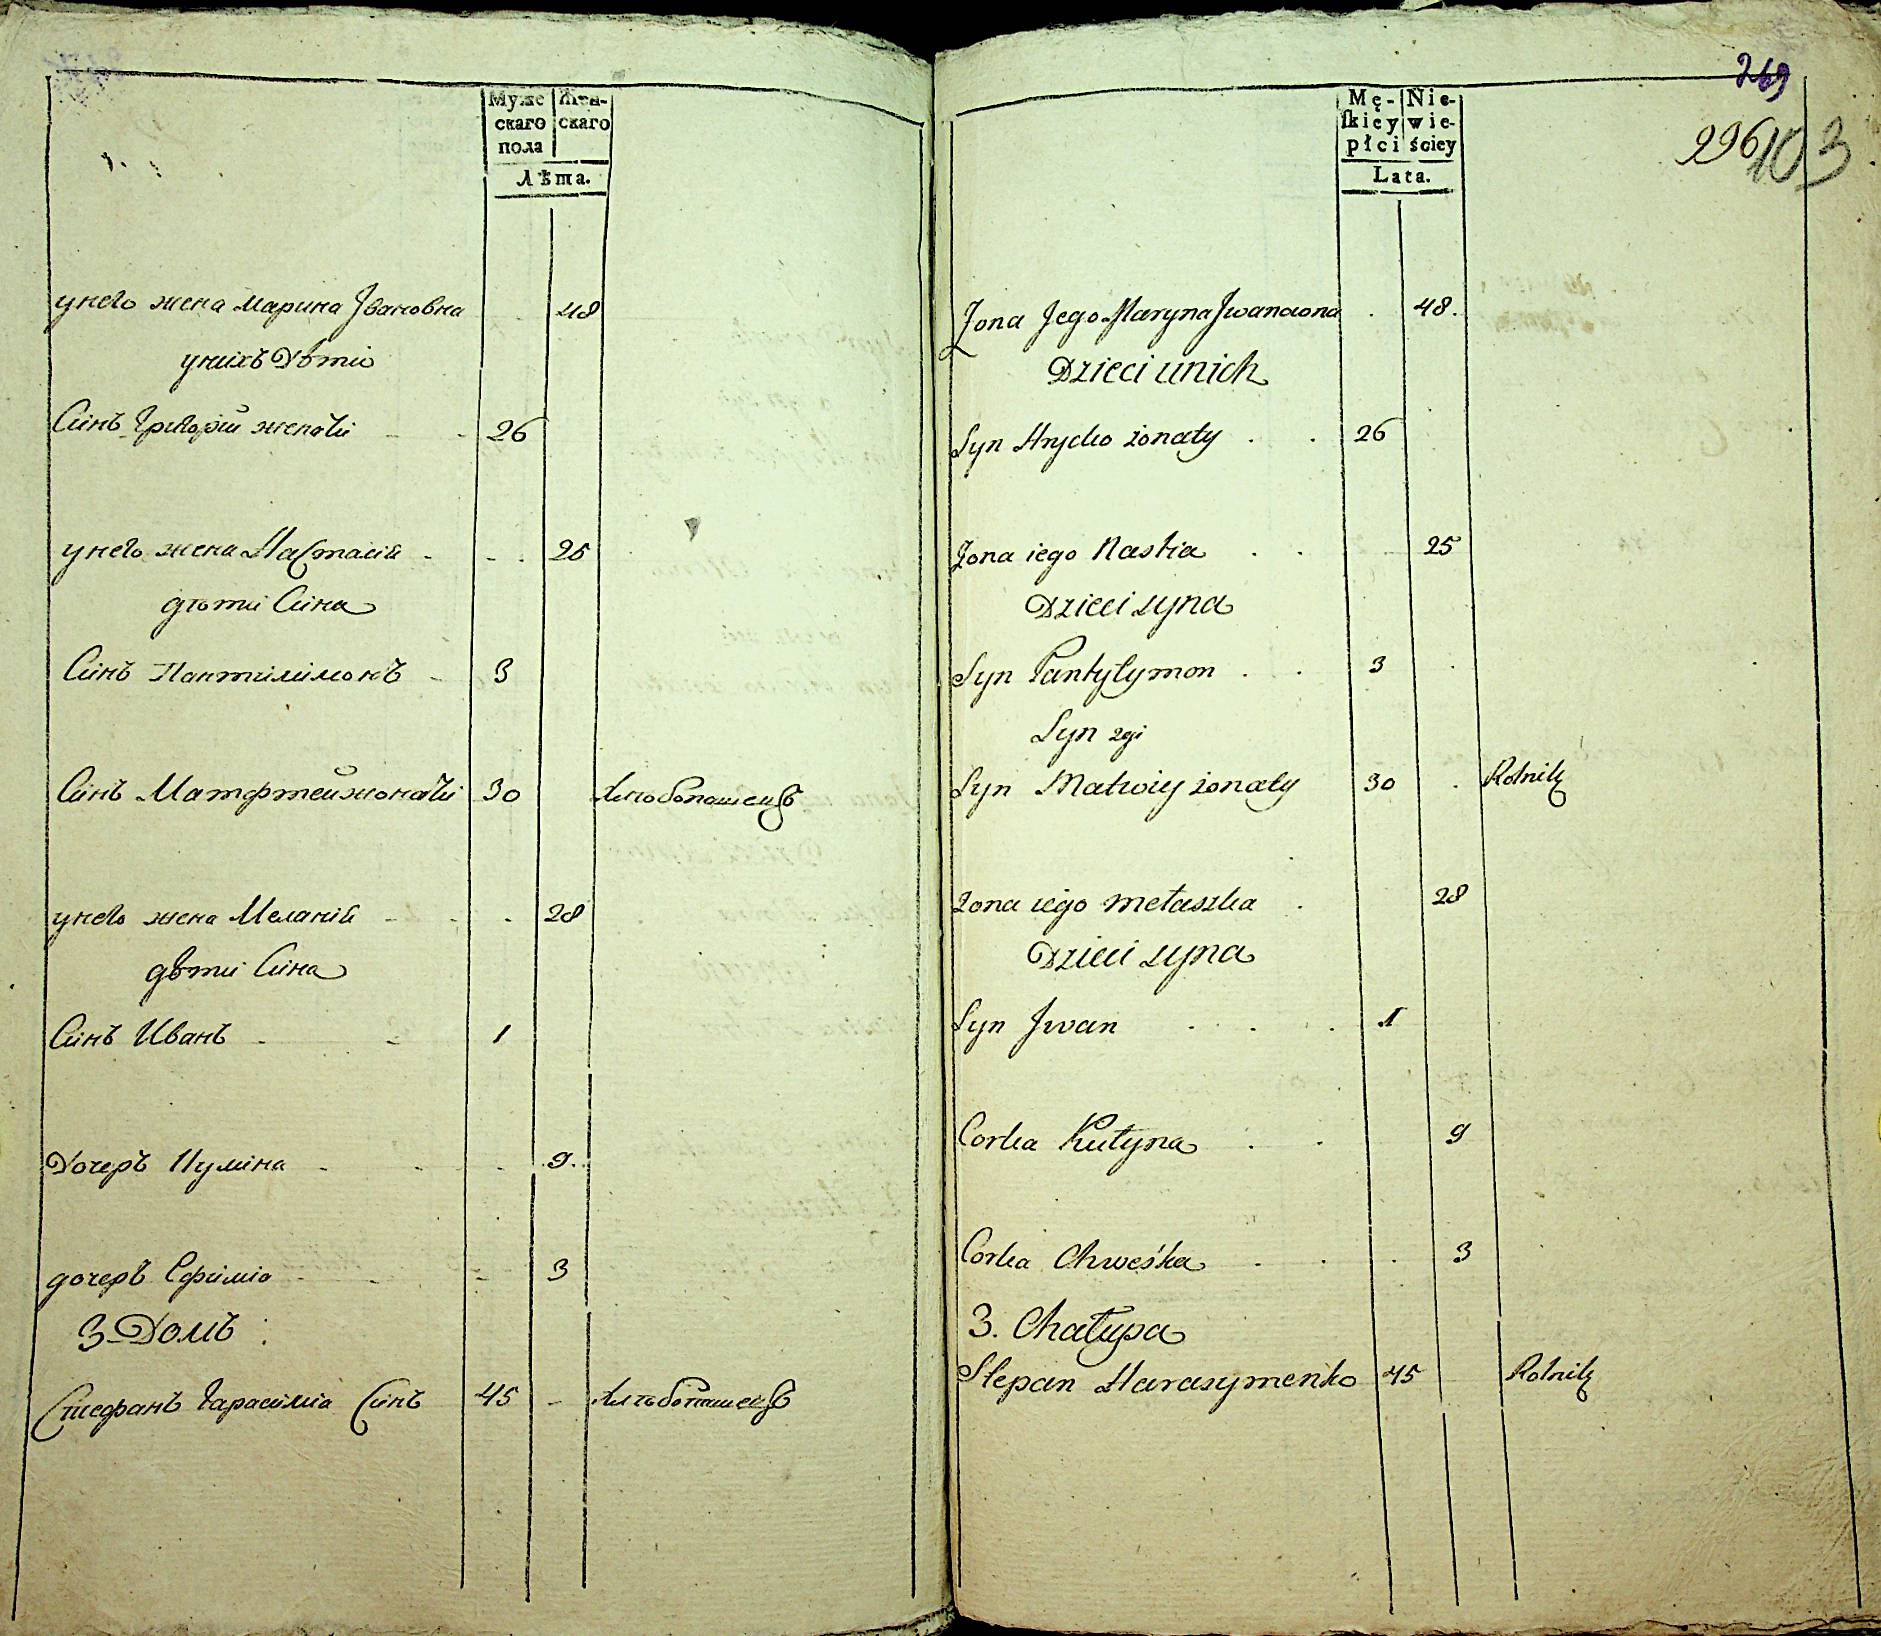 Муже Жен-
скаго скаго
пола
Лѣта.
унего жена Марина Івановна 48
унихъ Дѣти
Синъ Григорій женатй 26
унего жена Настасій 25
дѣти Сина
Синъ Пантилимонъ 3
Синъ Матфтей жонатй 30 хлѣбопашецъ
унего жена Меланій 28
дѣти Сина
Синъ Иванъ 1
Дочеръ Пулина 9
дочеръ Ефиміа 3
3 Домъ
Стефанъ Гарасиміа Синъ 45 хлѣбопашецъ
269
296 103
Mę- Nie-
skiey wie-
płci ściey
Lata.
Żona Jego Maryna Jwanowna 48.
Dzieci unich
Syn Hryćko żonaty 26
Żona iego Nastia 25
Dzieci syna
Syn Pantyłymon 3
Syn 2gi
Syn Matwiy żonaty 30 Rolnik
Żona iego Mełaszka 28
Dzieci syna
Syn Jwan 1
Corka Kułyna 9
Corka Chweśka 3
3. Chałupa
Stepan Harasymenko 45 Rolnik